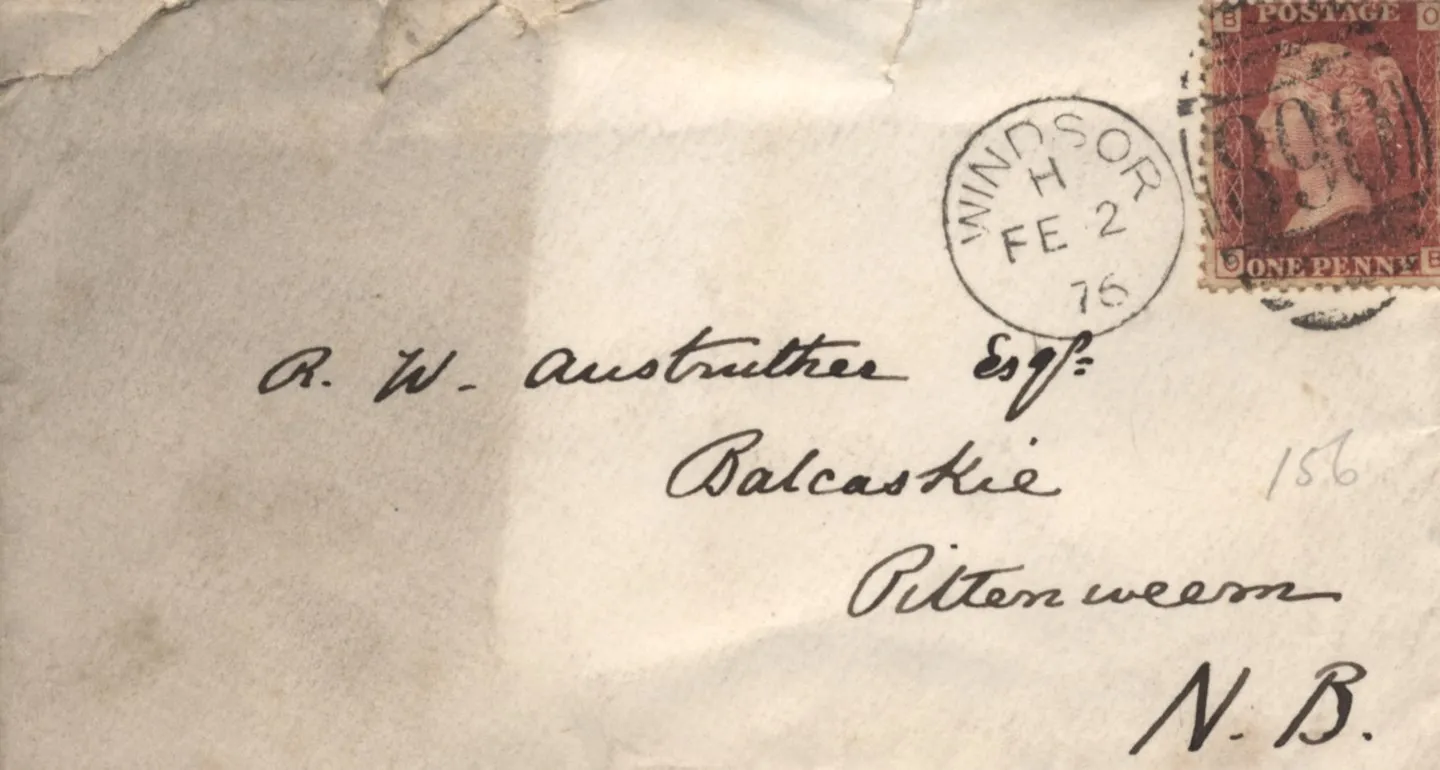 B POSTAGE O
WINDSOR
H
FE 2
76
O ONE PENNY. B
R. W. Anstruther Esqr.
Balcaskie
156
Pittenweem
N. B.